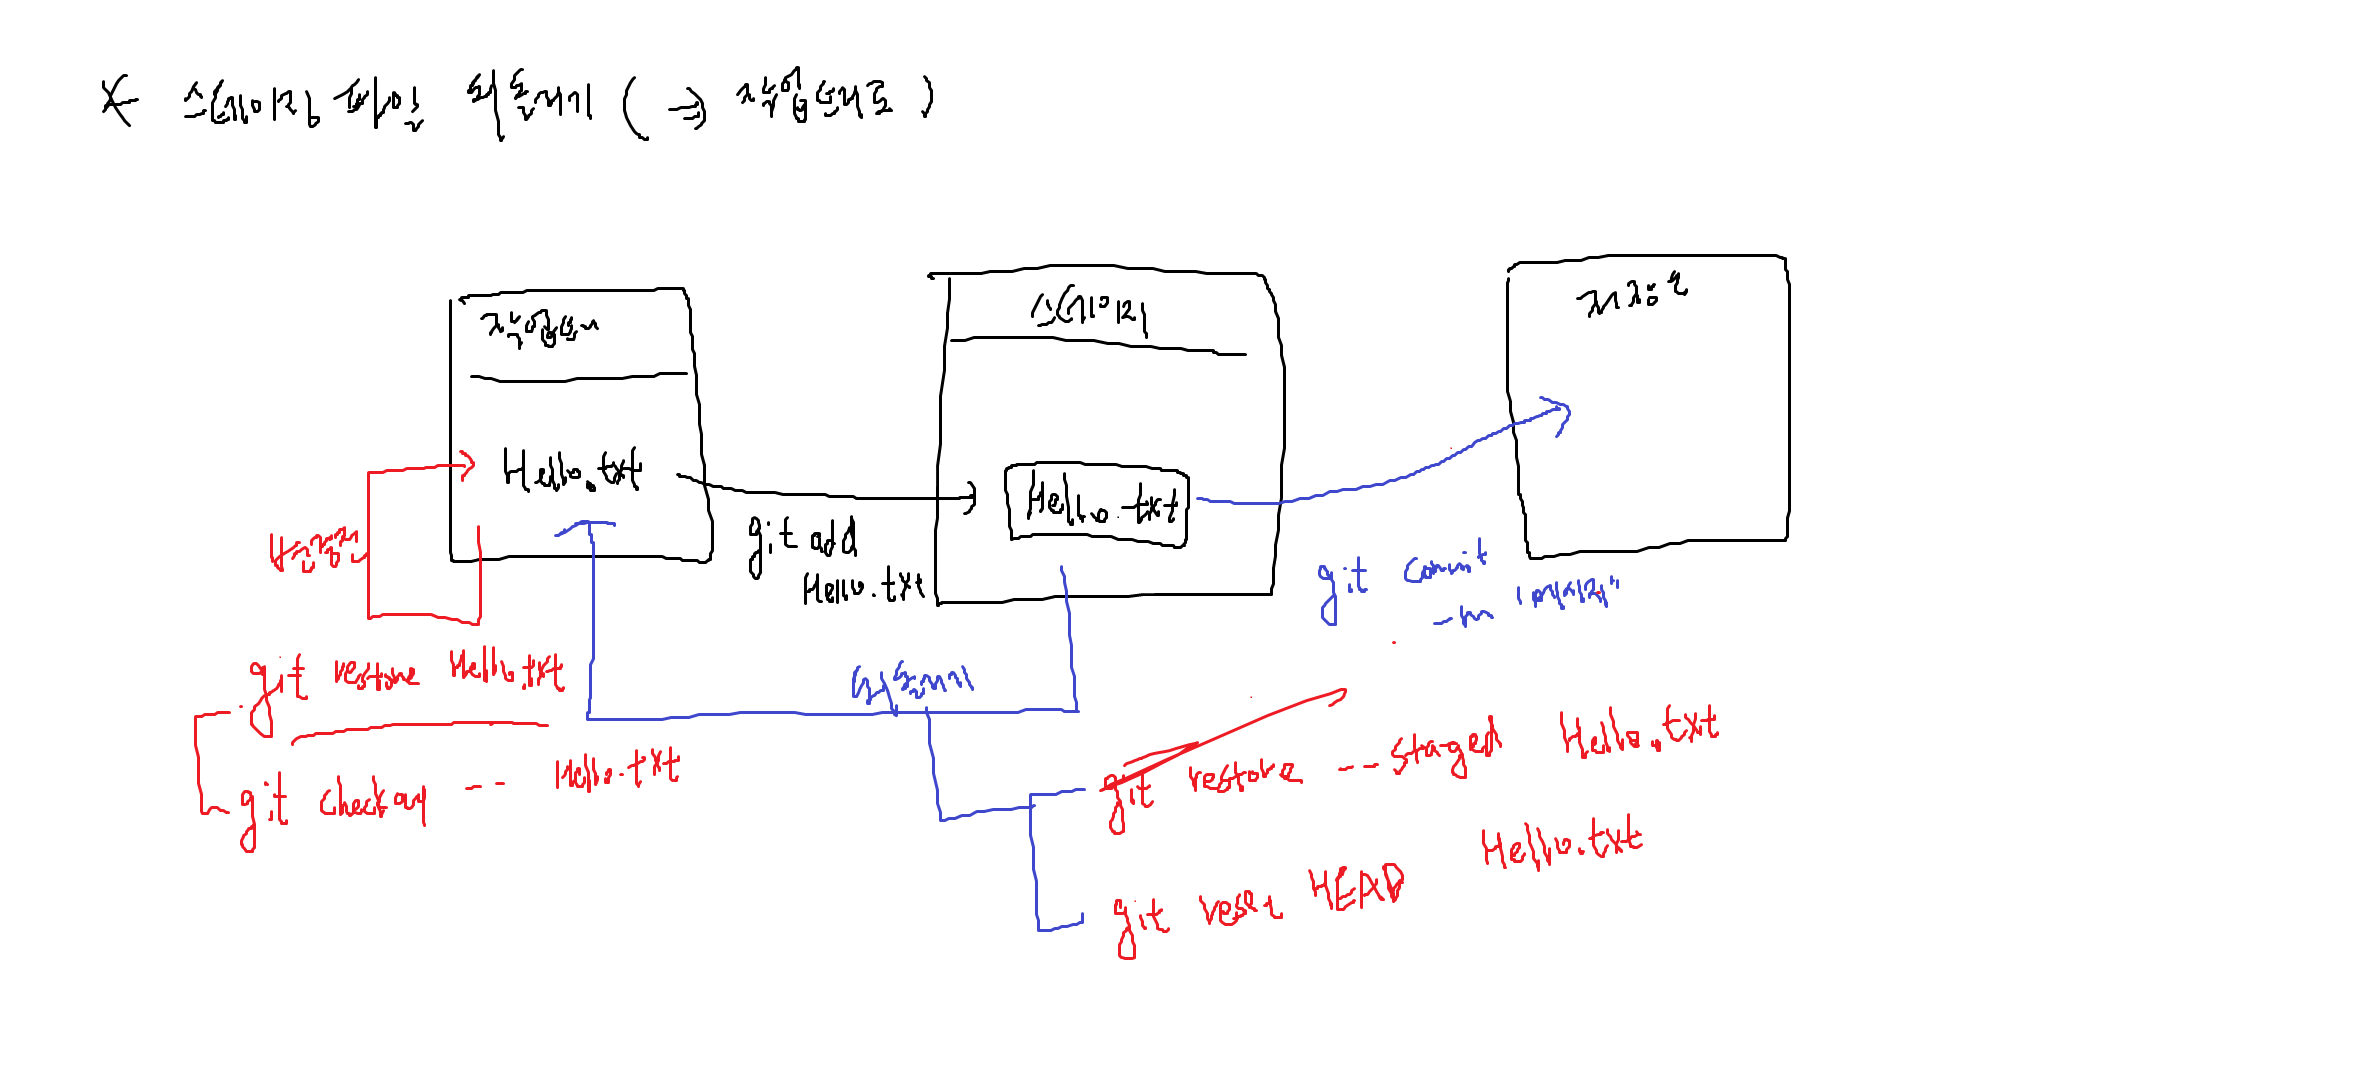 * 스테이징 파일 되돌리기 ( → 작업트리로 )
작업트리
스테이징
저장소
Hello.txt
Hello.txt
git add
Hello.txt
git commit
-m "메시지"
변경전
git restore Hello.txt
되돌리기
git checkout -- Hello.txt
git restore --staged Hello.txt
git reset HEAD Hello.txt